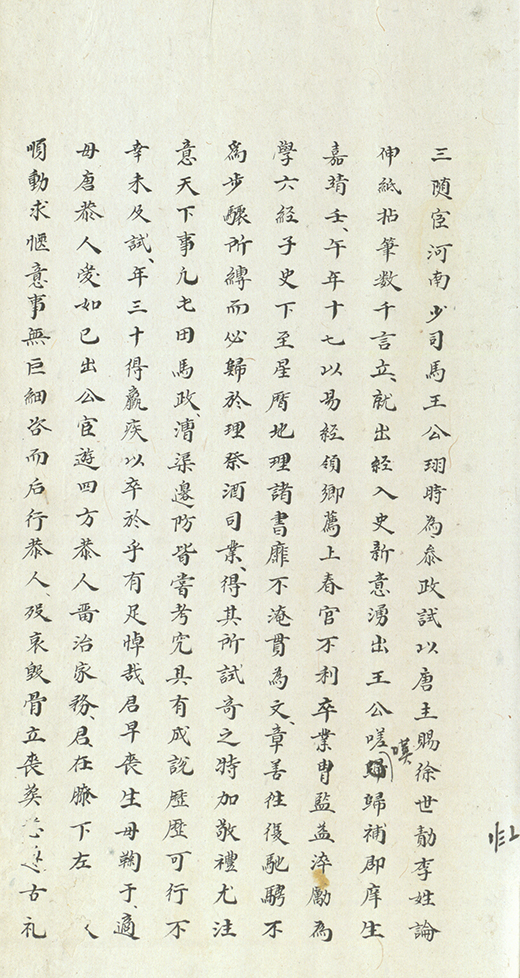 三随宦河南少司馬王公珝時為叅政試以唐主賜徐世勣李姓論
伸紙拈筆数千言立就出經入史新意湧出王公嗟嘆歸補郎庠生
嘉靖壬午年十七以昜經領鄉薦上春官不利卒業冑監益淬勵為
學六經子史下至星曆地理諸書靡不淹貫為文章善徃復馳騁不
為步驟所縛而必歸於理祭酒司業得其所試奇之特加敬禮尤注
意天下事凡屯田馬政漕渠邊防皆嘗考究具有成說歷歷可行不
幸未及試年三十得羸疾以卒於乎有足悼哉君早喪生母鞠于適
母唐恭人愛如已出公宦遊四方恭人畱治家務君在膝下左
順動求愜意事無巨細咨而后行恭人歿哀毀骨立喪葬 古礼